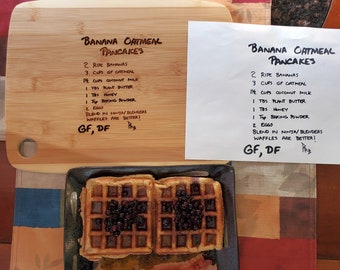 Banana Oatmeal
Pancakes
2 Ripe Bananas
3 Cups of Oatmeal
1¼ Cups Coconut Milk
1 Tbs Plant Butter
1 Tbs Honey
1 Tsp Baking Powder
2 Eggs
Blend in Ninja/Blenders
Waffles are Better!
GF, DF
Banana Oatmeal
Pancakes
2 Ripe Bananas
3 Cups of Oatmeal
1¼ Cups Coconut Milk
1 Tbs Plant Butter
1 Tbs Honey
1 Tsp Baking Powder
2 Eggs
Blend in Ninja/Blenders
Waffles are Better!
GF, DF